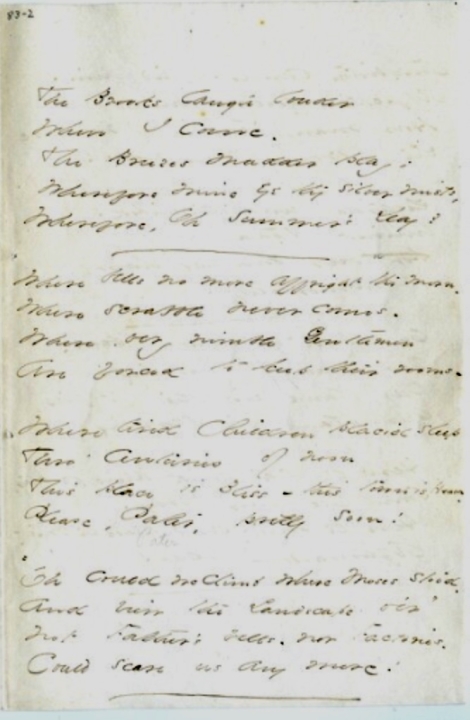 83-2
The Brooks laugh louder
When I come.
The Breezes madder play;
Wherefore mine eye thy silver mists,
Wherefore, Oh Summer's Day?
Where bells no more affright the morn.
Where scrabble never comes.
Where very nimble Gentlemen
Are forced to keep their rooms -
Where tired Children placid sleep
Thro' Centuries of noon
This place is Bliss - this town is Heaven
Please, Pater, pretty soon!
Pater
"Oh could we climb where Moses stood,
And view the Landscape o'er"
Not Father's bells. nor Factories.
Could scare us any more!